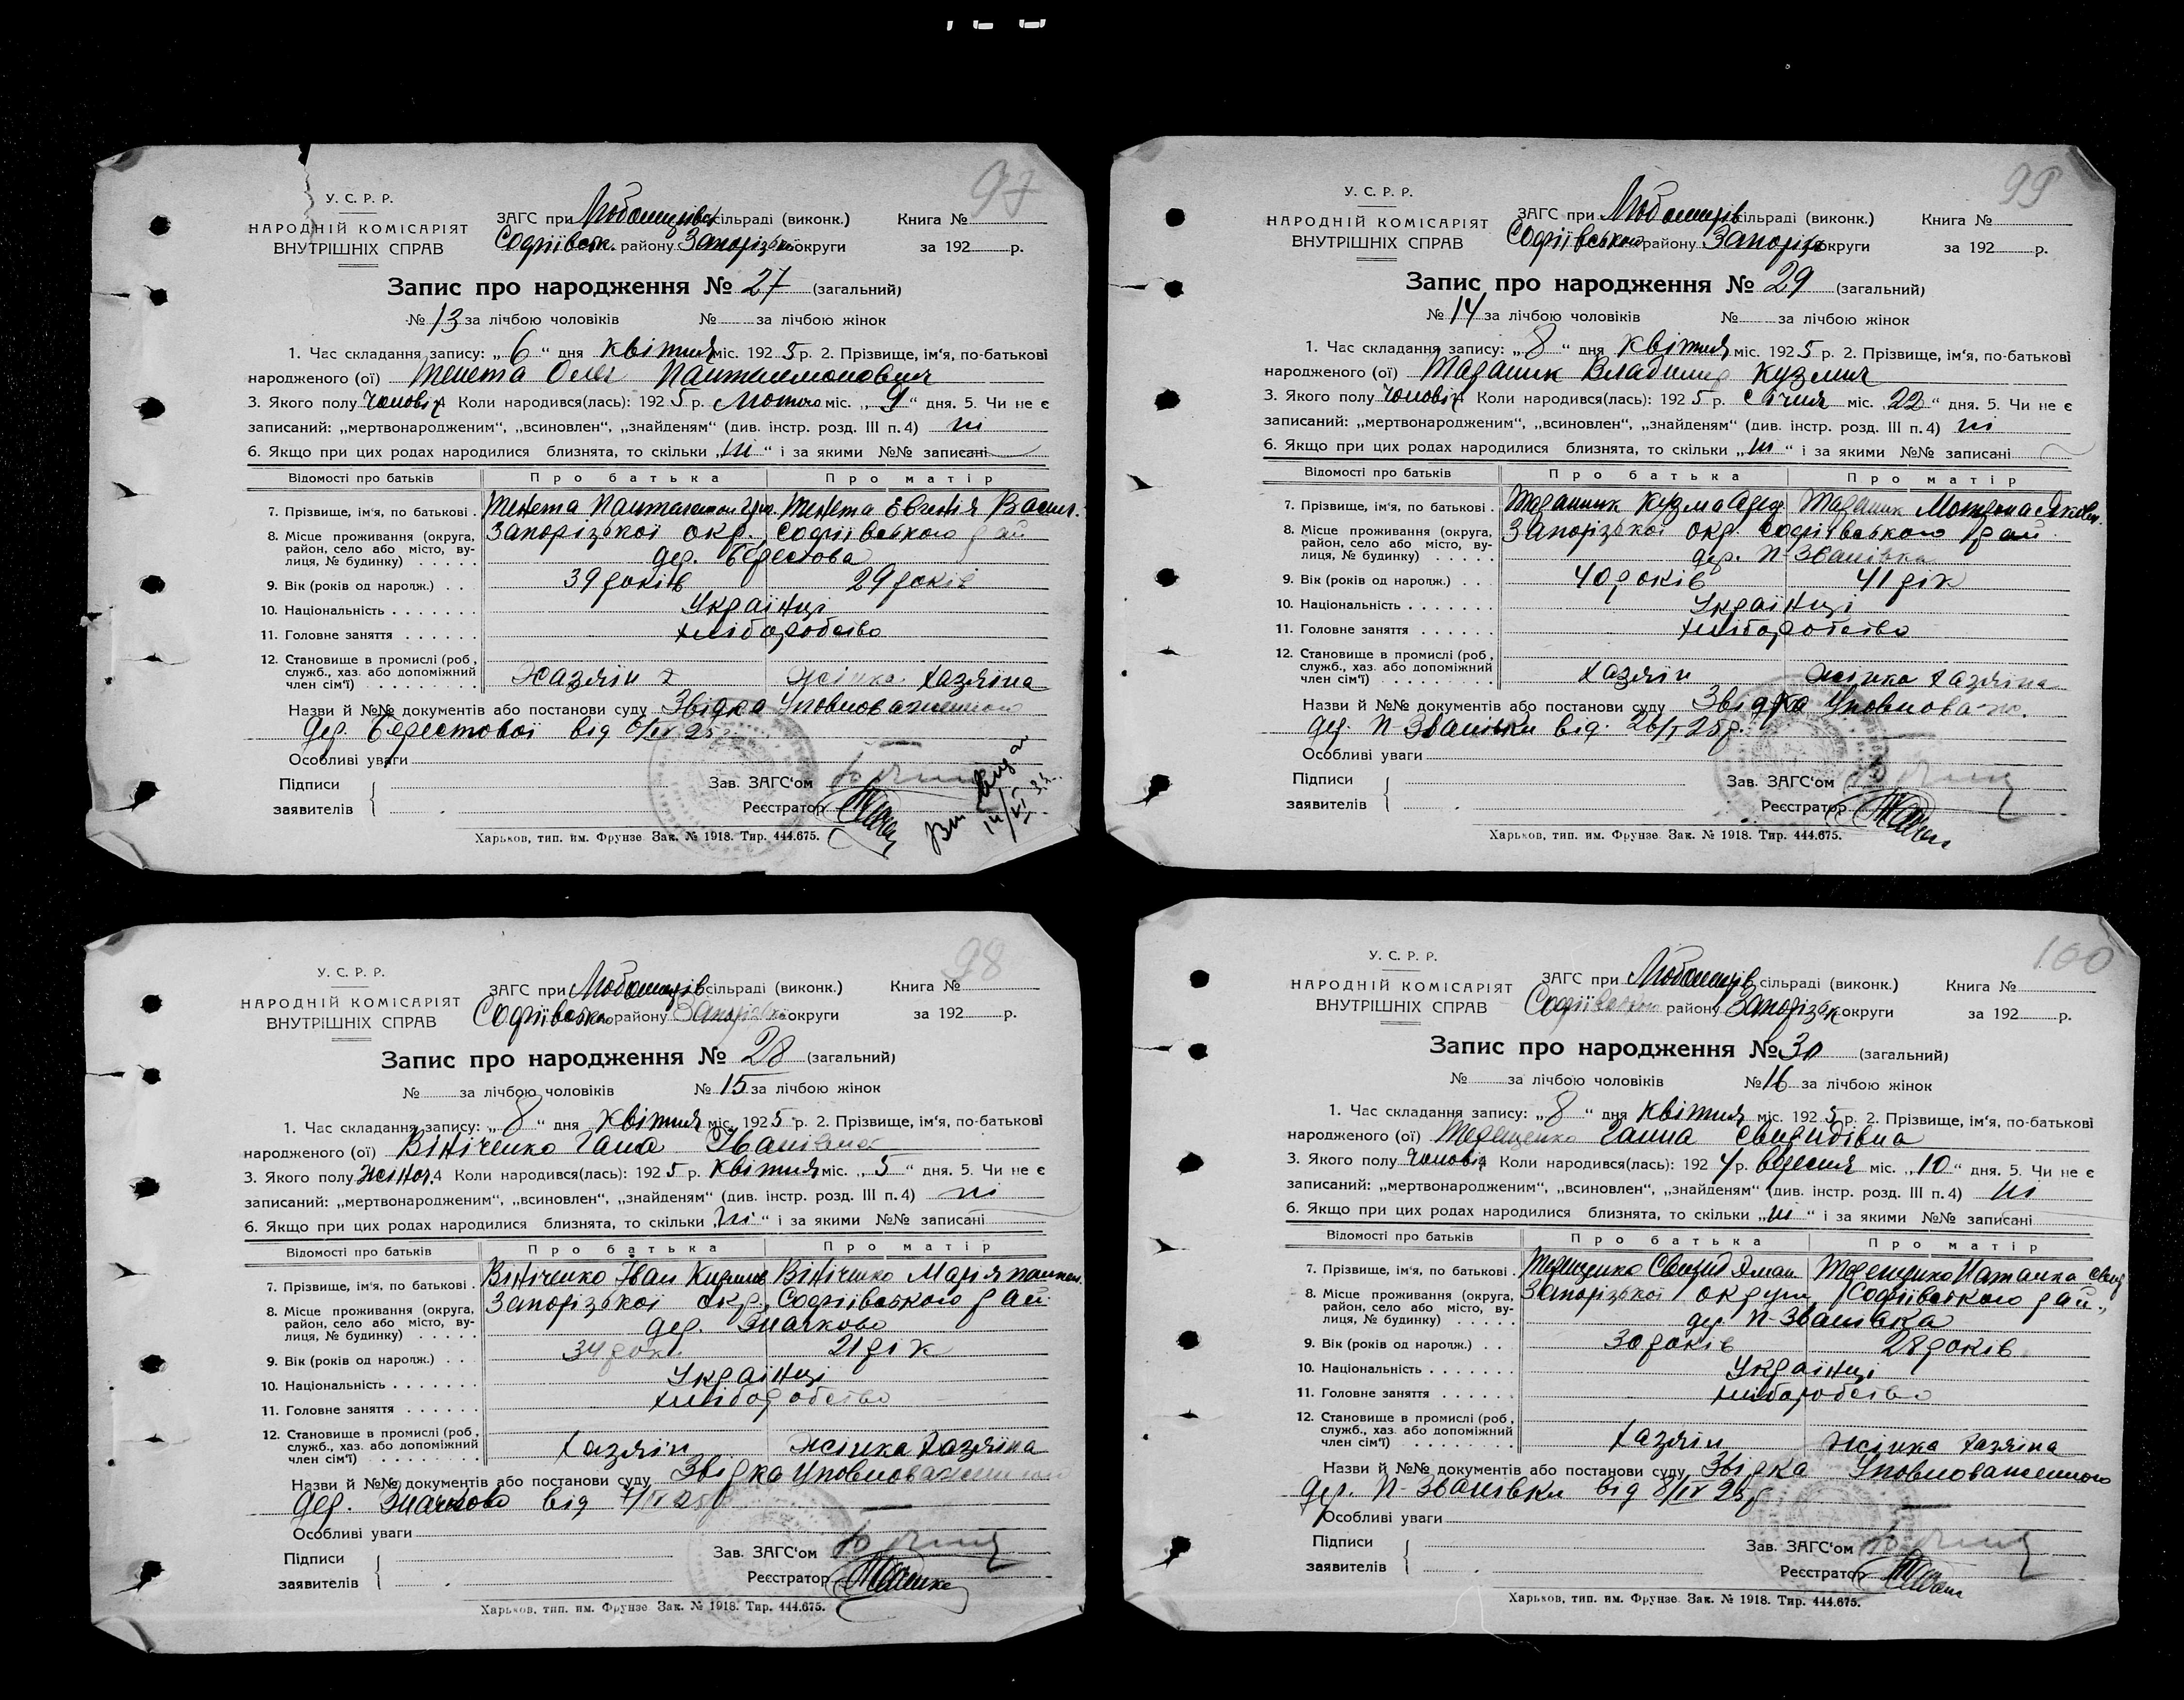 97
У. С. Р. Р.
НАРОДНІЙ КОМІСАРІЯТ
ВНУТРІШНІХ СПРАВ
ЗАГС при Любомирівс сільраді (виконк.) Книга №
Софіївськ. району Запорізьк округи за 192 р.
Запис про народження № 27 (загальний)
№ 13 за лічбою чоловіків № за лічбою жінок
1. Час складання запису: „ 6 “ дня квітня міс. 192 5 р. 2. Прізвище, ім‘я, по-батькові
народженого (ої) Тенета Олег Пантилимонович
3. Якого полу чоловіч 4 Коли народився(лась): 192 5 р. Лютого міс. „ 9 “ дня. 5. Чи не є
записаний: „мертвонародженим“, „всиновлен“, „знайденям“ (див. інстр. розд. III п. 4) ні
6. Якщо при цих родах народилися близнята, то скільки „ ні “ і за якими №№ записані
Відомості про батьків Про батька Про матір
7. Прізвище, ім‘я, по батькові . Тенета Євгенія Васил.
8. Місце проживання (округа, район, село або місто, вулиця, № будинку) Запорізької окр. Софіївського рай
дер. Берестова
9. Вік (років од народж.) . . 39 років 29 років
10. Національність . . . . . . . Українці
11. Головне заняття . . . . . . хліборобство
12. Становище в промислі (роб., служб., хаз. або допоміжний член сім‘ї) . . . Хазяїн жінка хазяїна
Назви й №№ документів або постанови суду Звідка Уповноваженного
дер. Берестової від 6/IV 25
Особливі уваги
Підписи
заявителів
Зав. ЗАГС‘ом
Реєстратор
Харьков, тип. им. Фрунзе Зак. № 1918. Тир. 444.675.
99
У. С. Р. Р.
НАРОДНІЙ КОМІСАРІЯТ
ВНУТРІШНІХ СПРАВ
ЗАГС при Любомирів сільраді (виконк.) Книга №
Софіївського району Запорізьк округи за 192 р.
Запис про народження № 29 (загальний)
№ 14 за лічбою чоловіків № за лічбою жінок
1. Час складання запису: „ 8 “ дня квітня міс. 192 5 р. 2. Прізвище, ім‘я, по-батькові
народженого (ої) Владимир Кузмич
3. Якого полу чоловіч Коли народився(лась): 192 5 р. січня міс. 22 “ дня. 5. Чи не є
записаний: „мертвонародженим“, „всиновлен“, „знайденям“ (див. інстр. розд. III п. 4) ні
6. Якщо при цих родах народилися близнята, то скільки „ ні “ і за якими №№ записані
Відомості про батьків Про батька Про матір
7. Прізвище, ім‘я, по батькові . Кузма Мотрона Яковл.
8. Місце проживання (округа, район, село або місто, вулиця, № будинку) Запорізької окр. Софіївського рай.
дер. П-Званівка
9. Вік (років од народж.) . . . 40 років 41 рік
10. Національність . . . . . . . Українці
11. Головне заняття . . . . . . хліборобство
12. Становище в промислі (роб., служб., хаз. або допоміжний член сім‘ї) . . . хазяїн жінка хазяїна
Назви й №№ документів або постанови суду Звідка Уповноваж.
дер. П-Званівки від 26/I 25 р.
Особливі уваги
Підписи
заявителів
Зав. ЗАГС‘ом
Реєстратор
Харьков, тип. им. Фрунзе Зак. № 1918. Тир. 444.675.
98
У. С. Р. Р.
НАРОДНІЙ КОМІСАРІЯТ
ВНУТРІШНІХ СПРАВ
ЗАГС при Любомирів сільраді (виконк.) Книга №
Софіївського району Запорізьк округи за 192 р.
Запис про народження № 28 (загальний)
№ за лічбою чоловіків № 15 за лічбою жінок
1. Час складання запису: „ 8 “ дня квітня міс. 192 5 р. 2. Прізвище, ім‘я, по-батькові
народженого (ої) Вініченко Гана Іванівна
3. Якого полу жіноч. 4 Коли народився(лась): 192 5 р. квітня міс. „ 5 “ дня. 5. Чи не є
записаний: „мертвонародженим“, „всиновлен“, „знайденям“ (див. інстр. розд. III п. 4) ні
6. Якщо при цих родах народилися близнята, то скільки „ ні “ і за якими №№ записані
Відомості про батьків Про батька Про матір
7. Прізвище, ім‘я, по батькові . Вініченко Іван Кирилов Вініченко Марія
8. Місце проживання (округа, район, село або місто, вулиця, № будинку) Запорізької окр., Софіївського рай.
дер. Значково
9. Вік (років од народж.) . . . 34 рок. 21 рік
10. Національність . . . . . . . Українці
11. Головне заняття . . . . . . хліборобство
12. Становище в промислі (роб., служб., хаз. або допоміжний член сім‘ї) . . . хазяїн жінка хазяїна
Назви й №№ документів або постанови суду Звідка Уповноваженного
дер. Значково від
Особливі уваги
Підписи
заявителів
Зав. ЗАГС‘ом
Реєстратор
Харьков, тип. им. Фрунзе Зак. № 1918. Тир. 444.675.
100
У. С. Р. Р.
НАРОДНІЙ КОМІСАРІЯТ
ВНУТРІШНІХ СПРАВ
ЗАГС при Любомирів сільраді (виконк.) Книга №
Софіївського району Запорізьк округи за 192 р.
Запис про народження № 30 (загальний)
№ за лічбою чоловіків № 16 за лічбою жінок
1. Час складання запису: „ 8 “ дня квітня міс. 192 5 р. 2. Прізвище, ім‘я, по-батькові
народженого (ої) Терещенко Ганна Свиридівна
3. Якого полу чоловіч Коли народився(лась): 192 4 р. вересня міс. „ 10 “ дня. 5. Чи не є
записаний: „мертвонародженим“, „всиновлен“, „знайденям“ (див. інстр. розд. III п. 4) ні
6. Якщо при цих родах народилися близнята, то скільки „ ні “ і за якими №№ записані
Відомості про батьків Про батька Про матір
7. Прізвище, ім‘я, по батькові . Терещенко Свирид Терещенко Наталка
8. Місце проживання (округа, район, село або місто, вулиця, № будинку) Запорізької округи, Софіївського рай.,
дер. П-Званівка
9. Вік (років од народж.) . . 30 років 28 років
10. Національність . . . . . . . Українці
11. Головне заняття . . . . . . хліборобство
12. Становище в промислі (роб., служб., хаз. або допоміжний член сім‘ї) . . . хазяїн жінка хазяїна
Назви й №№ документів або постанови суду Звідка Уповноваженного
дер. П-Званівки від 8/IV 25 р
Особливі уваги
Підписи
заявителів
Зав. ЗАГС‘ом
Реєстратор
Харьков, тип. им. Фрунзе Зак. № 1918. Тир. 444.675.